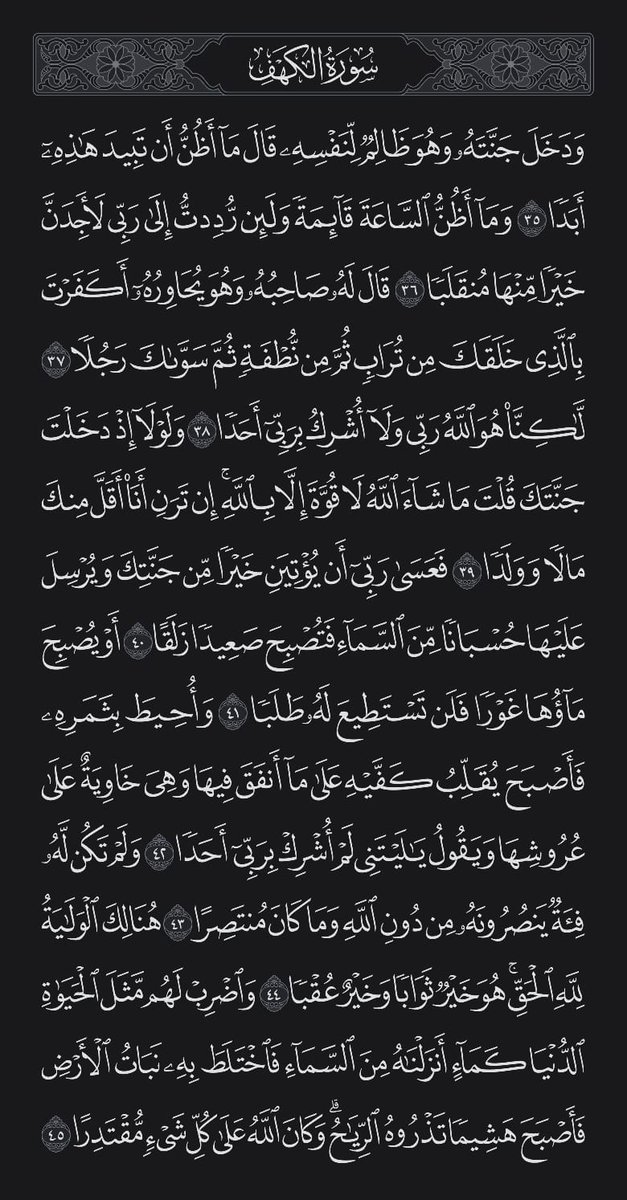 سُورَةُ الكَهْفِ
وَدَخَلَ جَنَّتَهُۥ وَهُوَ ظَالِمٞ لِّنَفۡسِهِۦ قَالَ مَآ أَظُنُّ أَن تَبِيدَ هَٰذِهِۦٓ
أَبَدٗا ٣٥ وَمَآ أَظُنُّ ٱلسَّاعَةَ قَآئِمَةٗ وَلَئِن رُّدِدتُّ إِلَىٰ رَبِّي لَأَجِدَنَّ
خَيۡرٗا مِّنۡهَا مُنقَلَبٗا ٣٦ قَالَ لَهُۥ صَاحِبُهُۥ وَهُوَ يُحَاوِرُهُۥٓ أَكَفَرۡتَ
بِٱلَّذِي خَلَقَكَ مِن تُرَابٖ ثُمَّ مِن نُّطۡفَةٖ ثُمَّ سَوَّىٰكَ رَجُلٗا ٣٧
لَّٰكِنَّا۠ هُوَ ٱللَّهُ رَبِّي وَلَآ أُشۡرِكُ بِرَبِّيٓ أَحَدٗا ٣٨ وَلَوۡلَآ إِذۡ دَخَلۡتَ
جَنَّتَكَ قُلۡتَ مَا شَآءَ ٱللَّهُ لَا قُوَّةَ إِلَّا بِٱللَّهِۚ إِن تَرَنِ أَنَا۠ أَقَلَّ مِنكَ
مَالٗا وَوَلَدٗا ٣٩ فَعَسَىٰ رَبِّيٓ أَن يُؤۡتِيَنِ خَيۡرٗا مِّن جَنَّتِكَ وَيُرۡسِلَ
عَلَيۡهَا حُسۡبَانٗا مِّنَ ٱلسَّمَآءِ فَتُصۡبِحَ صَعِيدٗا زَلَقًا ٤٠ أَوۡ يُصۡبِحَ
مَآؤُهَا غَوۡرٗا فَلَن تَسۡتَطِيعَ لَهُۥ طَلَبٗا ٤١ وَأُحِيطَ بِثَمَرِهِۦ
فَأَصۡبَحَ يُقَلِّبُ كَفَّيۡهِ عَلَىٰ مَآ أَنفَقَ فِيهَا وَهِيَ خَاوِيَةٌ عَلَىٰ
عُرُوشِهَا وَيَقُولُ يَٰلَيۡتَنِي لَمۡ أُشۡرِكۡ بِرَبِّيٓ أَحَدٗا ٤٢ وَلَمۡ تَكُن لَّهُۥ
فِئَةٞ يَنصُرُونَهُۥ مِن دُونِ ٱللَّهِ وَمَا كَانَ مُنتَصِرًا ٤٣ هُنَالِكَ ٱلۡوَلَٰيَةُ
لِلَّهِ ٱلۡحَقِّۚ هُوَ خَيۡرٞ ثَوَابٗا وَخَيۡرٌ عُقۡبٗا ٤٤ وَٱضۡرِبۡ لَهُم مَّثَلَ ٱلۡحَيَوٰةِ
ٱلدُّنۡيَا كَمَآءٍ أَنزَلۡنَٰهُ مِنَ ٱلسَّمَآءِ فَٱخۡتَلَطَ بِهِۦ نَبَاتُ ٱلۡأَرۡضِ
فَأَصۡبَحَ هَشِيمٗا تَذۡرُوهُ ٱلرِّيَٰحُۗ وَكَانَ ٱللَّهُ عَلَىٰ كُلِّ شَيۡءٖ مُّقۡتَدِرًا ٤٥